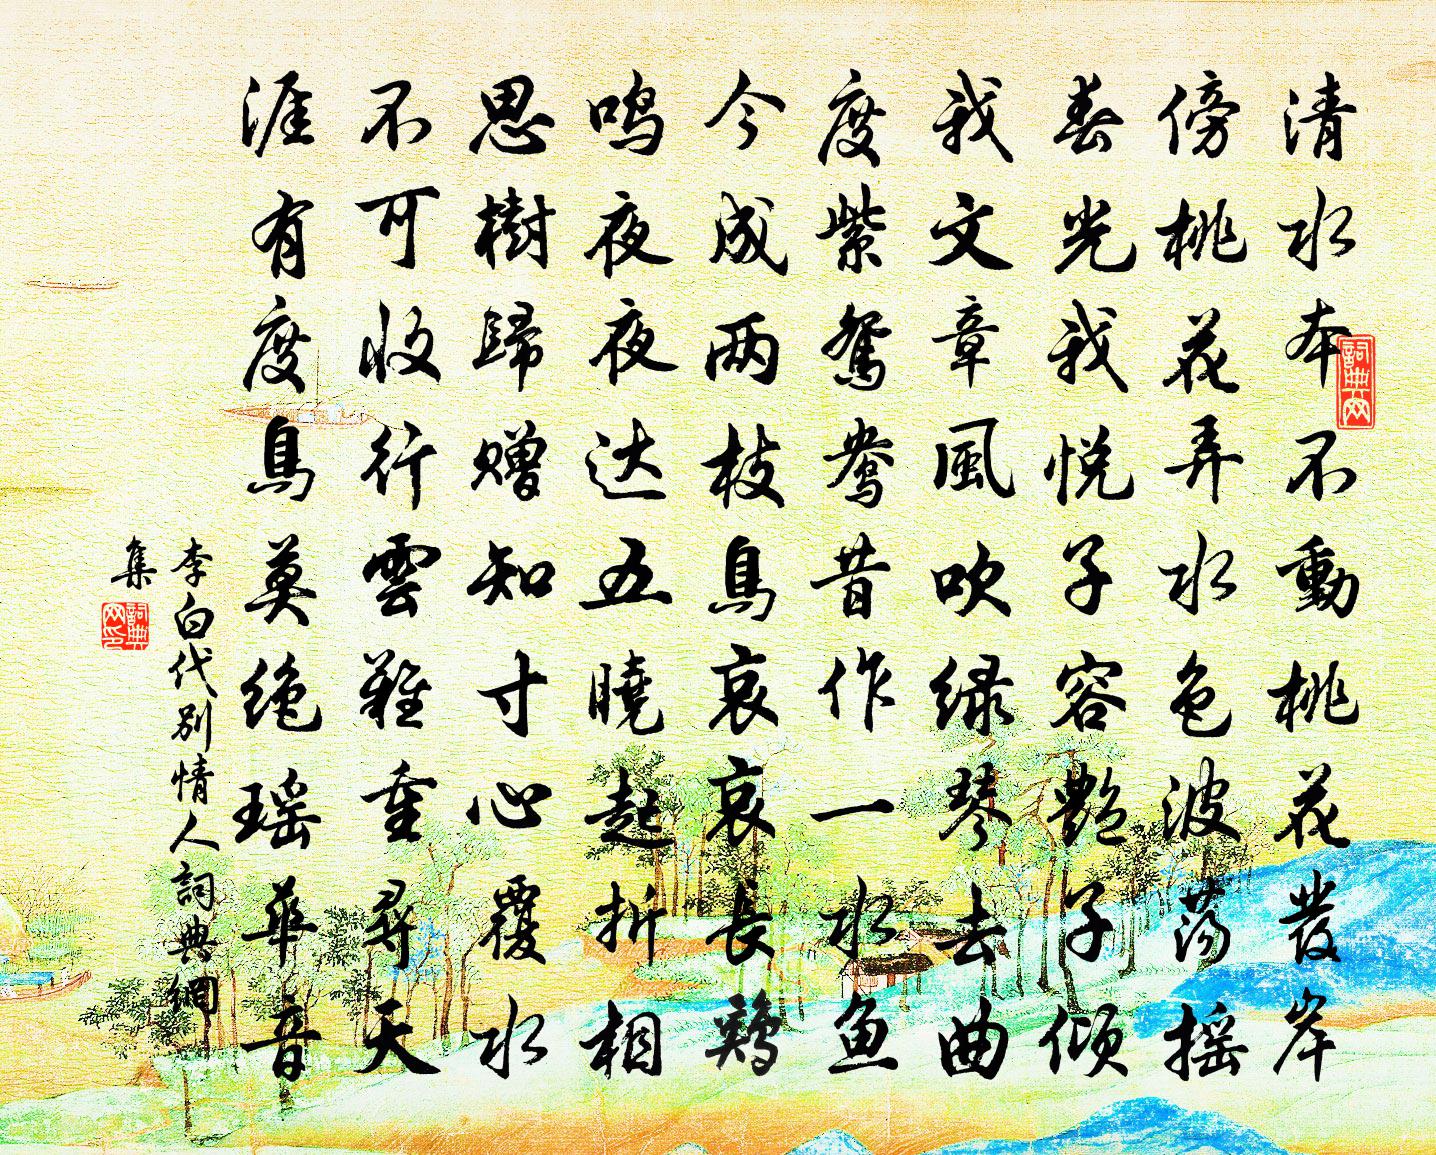 清水本不動桃花發岸
傍桃花弄水色波蕩摇
春光我悦子容艷子傾
我文章風吹緑琴去曲
度紫鴛鴦昔作一水鱼
今成两枝鳥哀哀長鷄
鸣夜夜达五曉起折相
思樹歸赠知寸心覆水
不可收行雲難重尋天
涯有度鳥莫绝瑶華音
李白代别情人詞典網
集
詞典网
詞典网印